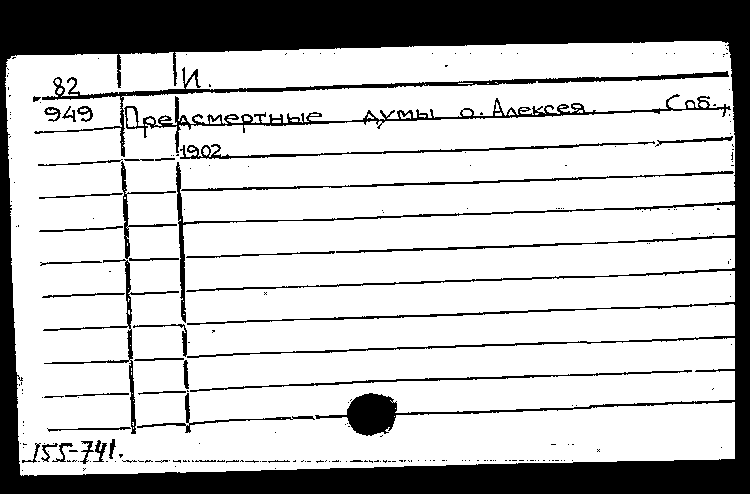 82 И.
949 Предсмертные думы о. Алексея. Спб.,
1902.
155-741.